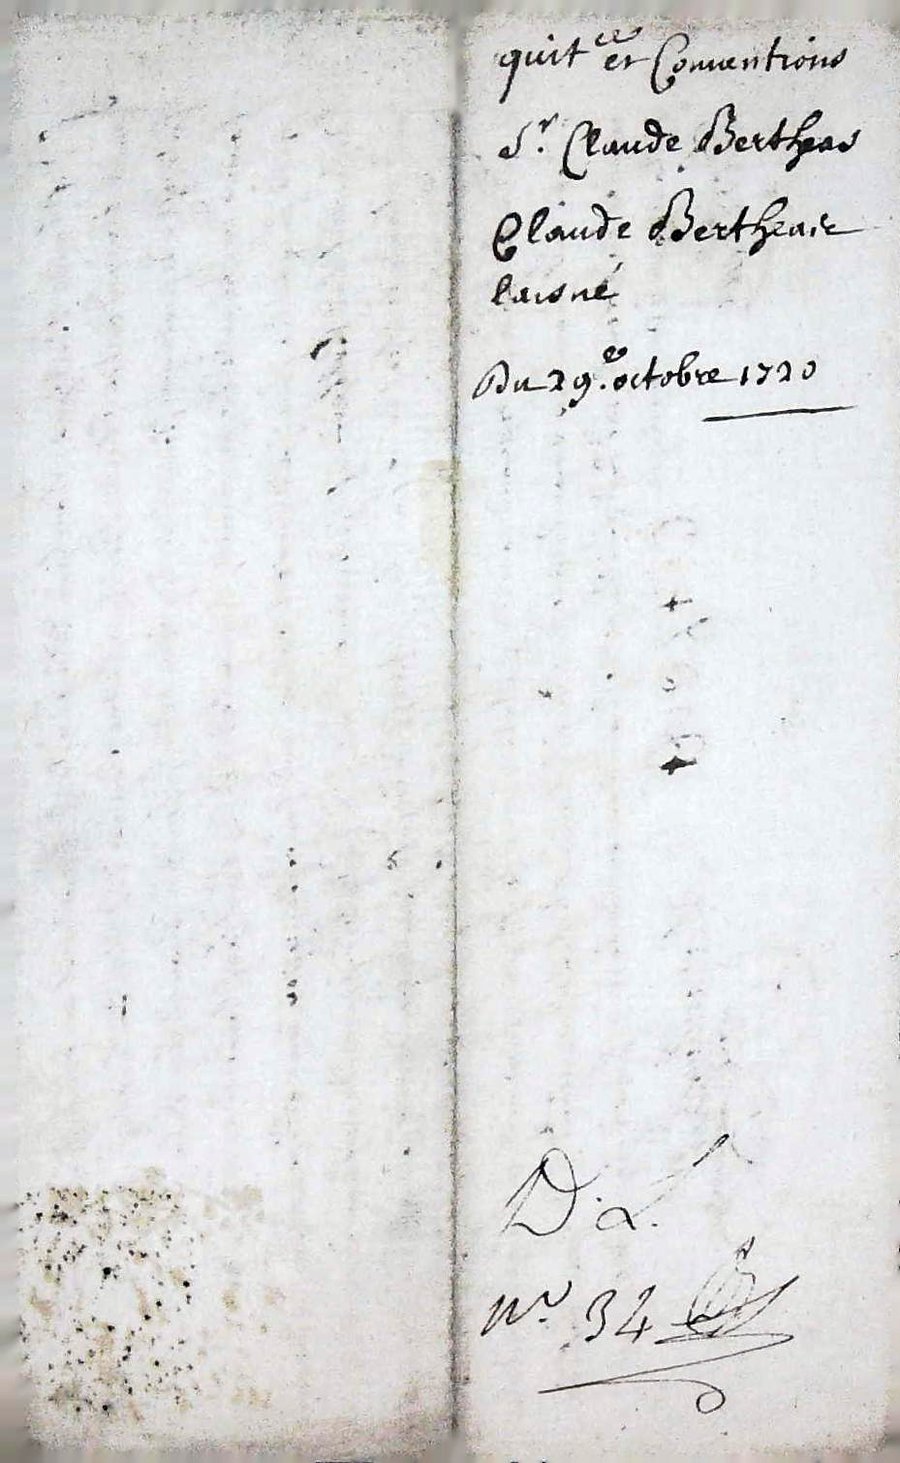 quit ce et Conventions
Sr. Claude Bertheas
Claude Bertheas
laisné
Du 29.e octobre 1720
D. L.
n.o 34